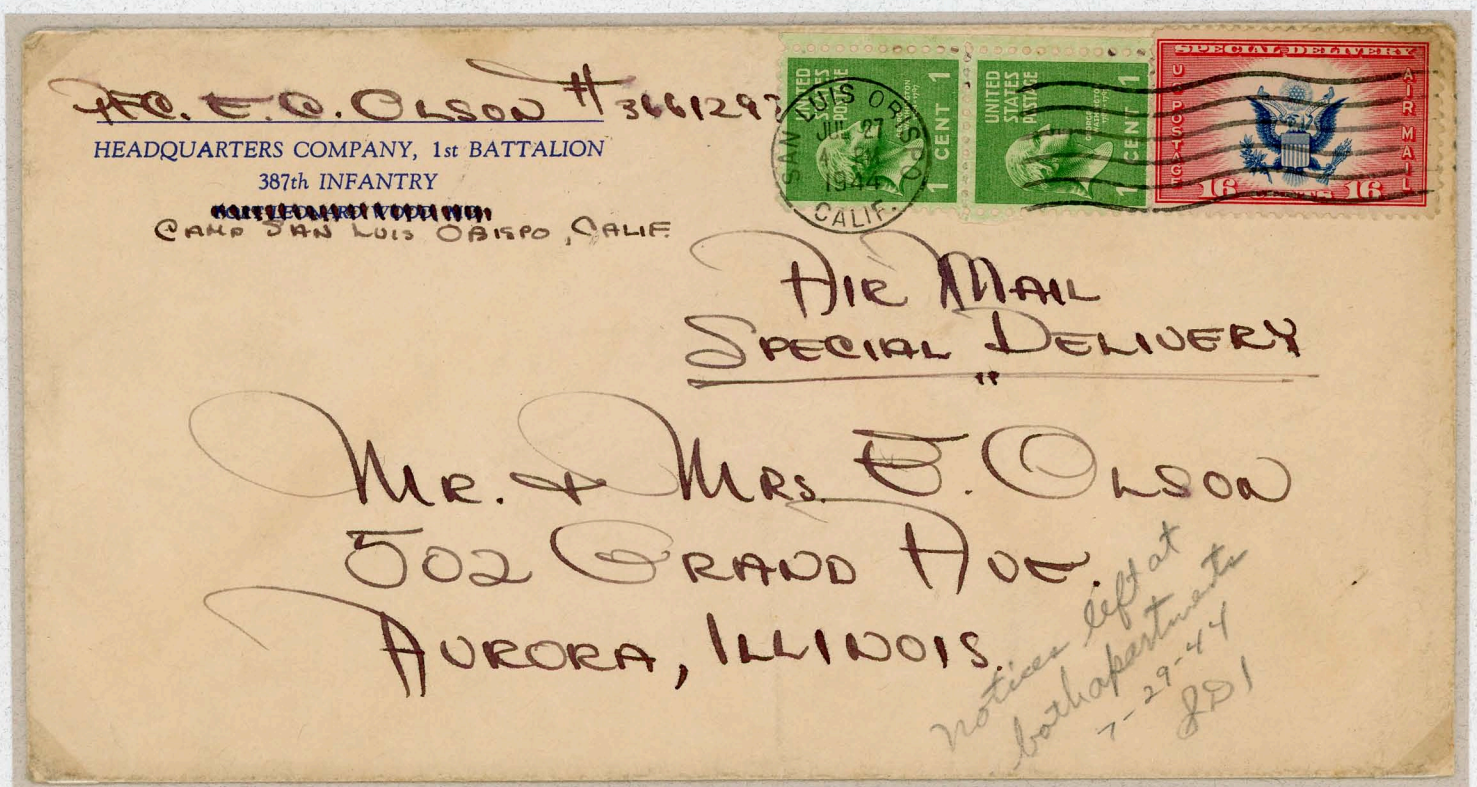 PFC. E. C. OLSON # 3661297
HEADQUARTERS COMPANY, 1st BATTALION
387th INFANTRY
FORT LEONARD WOOD, MO.
CAMP SAN LUIS OBISPO, CALIF.
SAN LUIS OBISPO
JUL 27
1944
CALIF.
UNITED
STATES
POSTAGE
1 CENT 1
UNITED
STATES
POSTAGE
GEORGE
WASHINGTON
1 CENT 1
SPECIAL DELIVERY
U.S. POSTAGE
AIR MAIL
16 CENTS 16
AIR MAIL
SPECIAL DELIVERY
MR. & MRS. E. OLSON
502 GRAND AVE.
AURORA, ILLINOIS.
Notices left at
both apartments
7-29-44